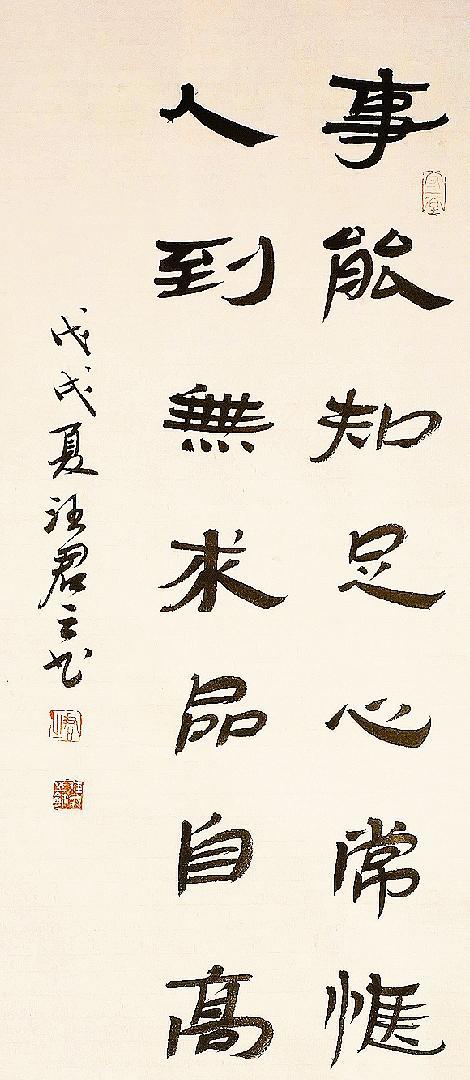 事能知足心常愜
人到無求品自高
戊戌夏君书